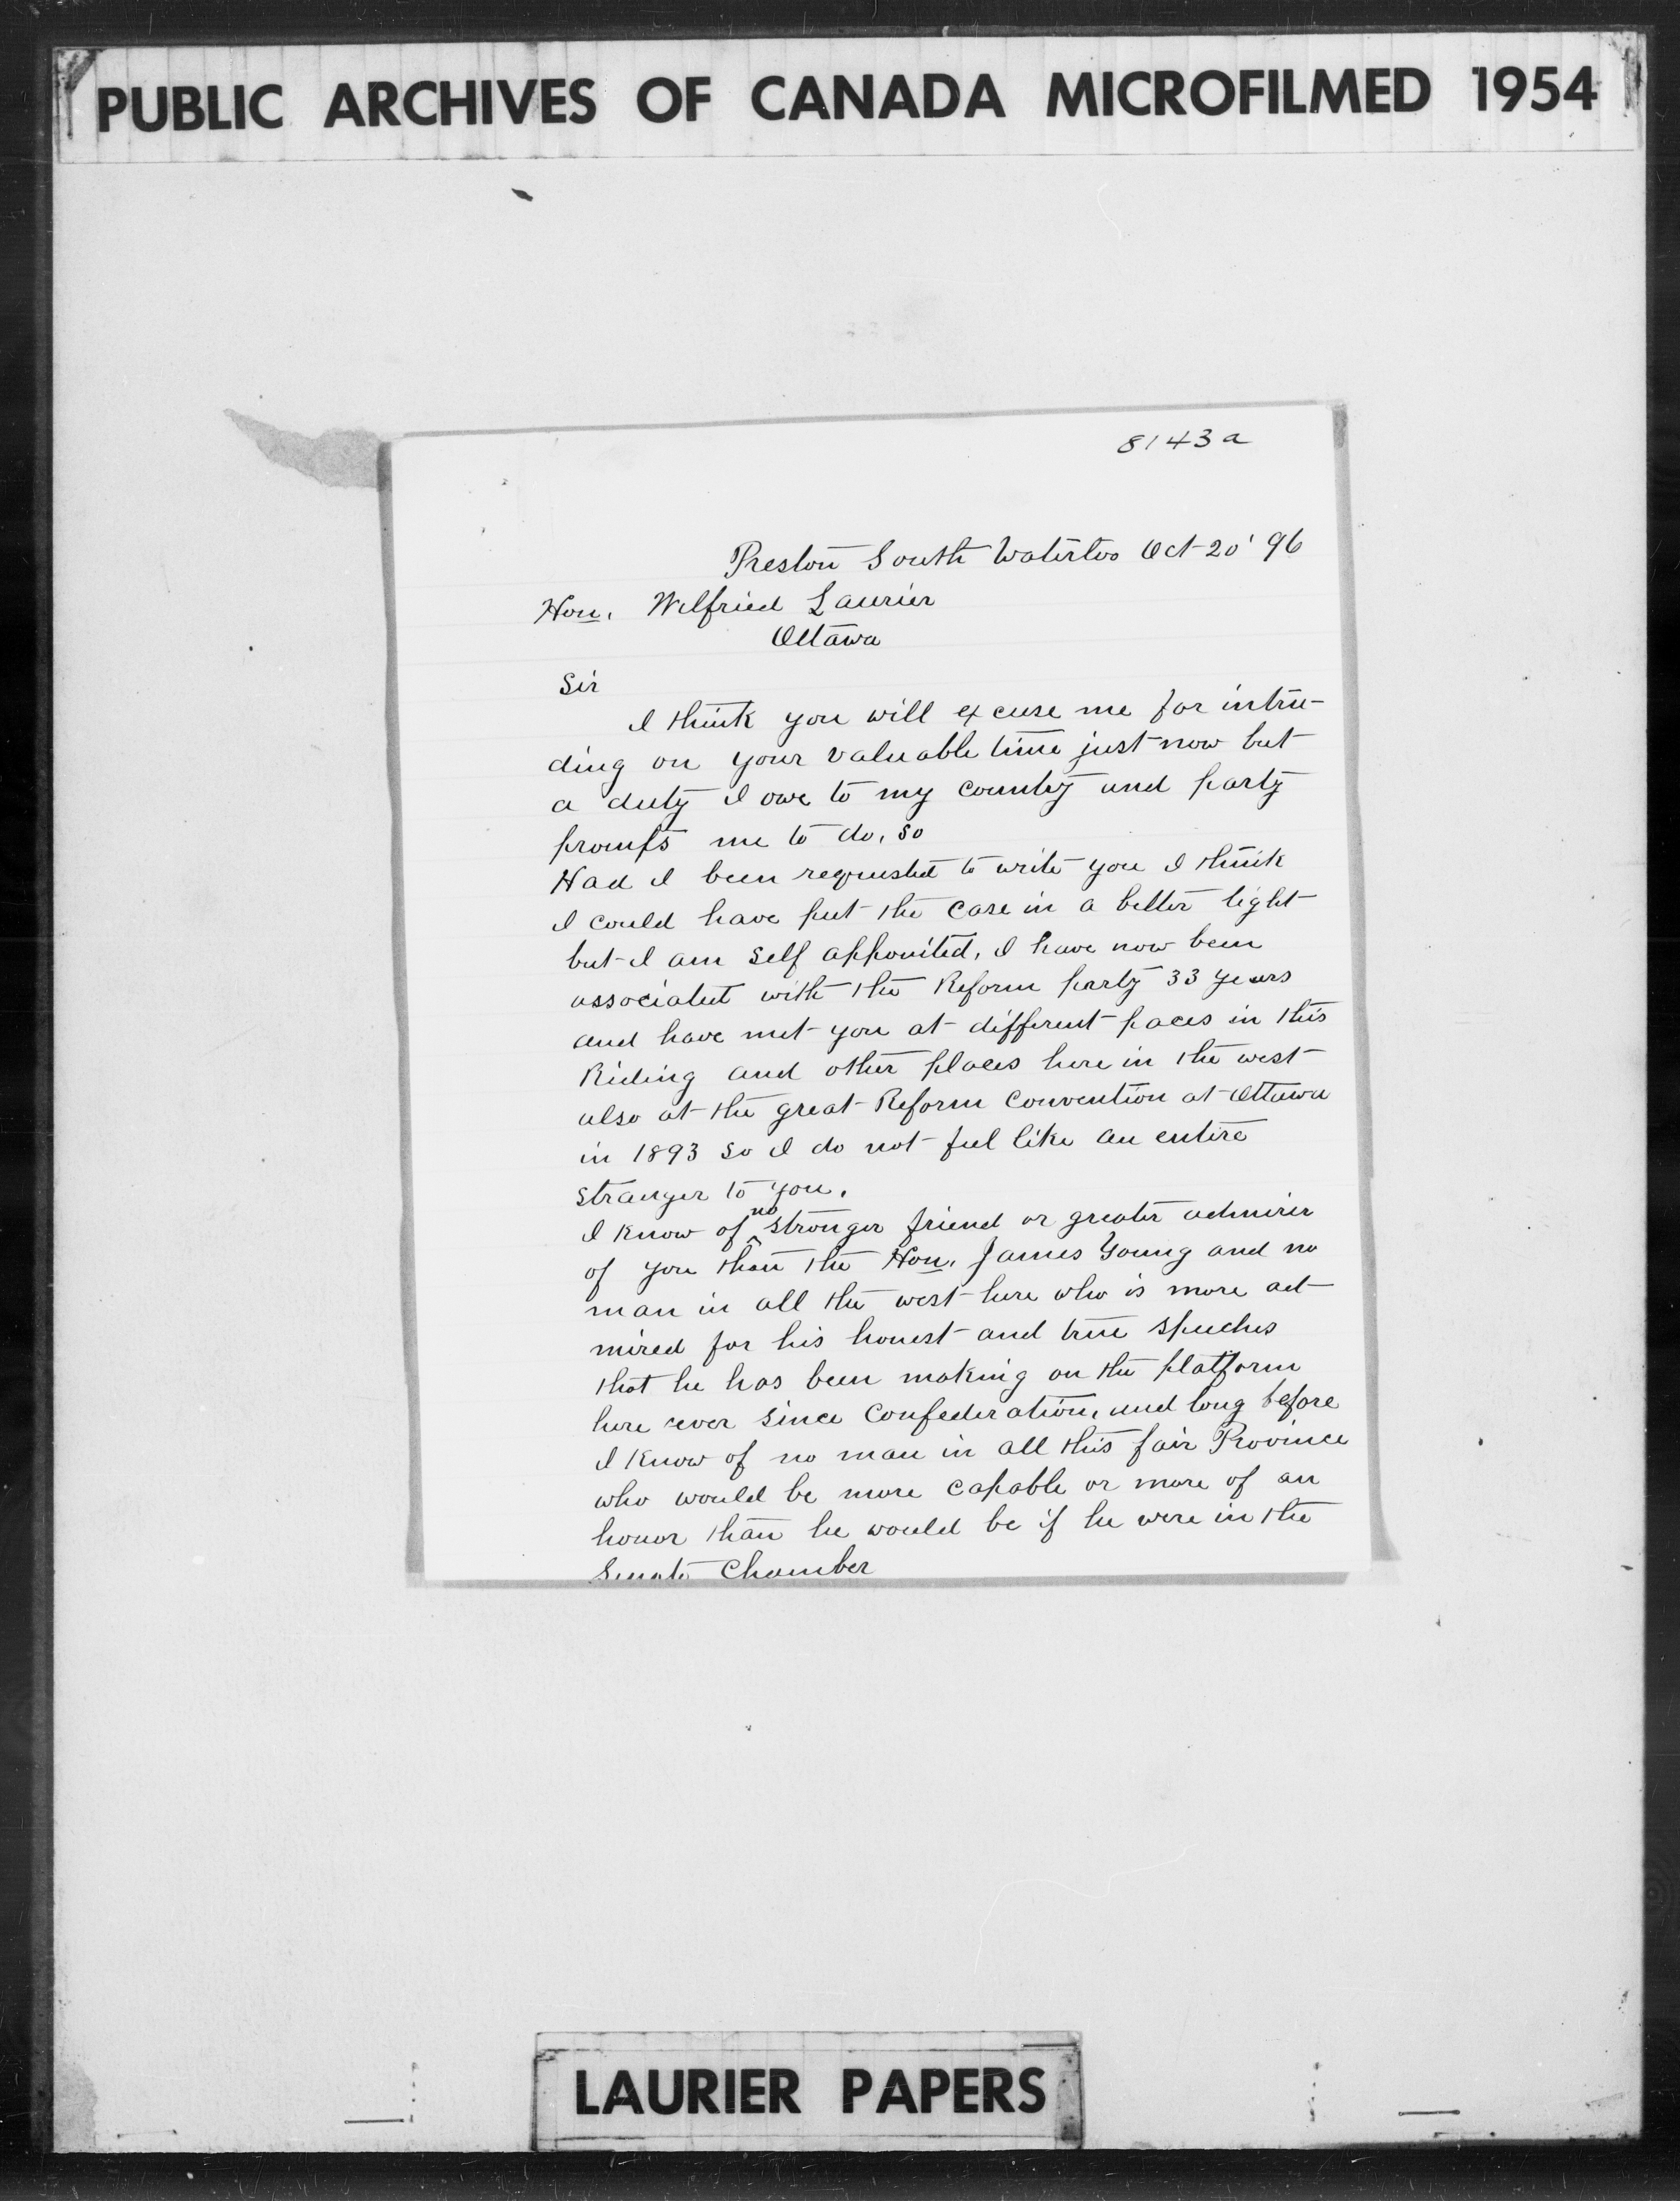 PUBLIC ARCHIVES OF CANADA MICROFILMED 1954
8143a
Preston South Waterloo Oct 20' 96
Hon. Wilfried Laurier
Ottawa
Sir
I think you will excuse me for intru-
ding on your valuable time just now but
a duty I owe to my country and party
prompts me to do, so
Had I been requested to write you I think
I could have put the case in a better light
but I am self appointed, I have now been
associated with the Reform party 33 years
and have met you at different paces in this
Riding and other places here in the west
also at the great Reform Convention at Ottawa
in 1893 so I do not feel like an entire
stranger to you.
I know of no stronger friend or greater admirer
of you than the Hon. James Young and no
man in all the west here who is more ad-
mired for his honest and true speeches
that he has been making on the platform
here ever since Confederation, and long before
I know of no man in all this fair Province
who would be more capable or more of an
honor than he would be if he were in the
Senate Chamber
LAURIER PAPERS